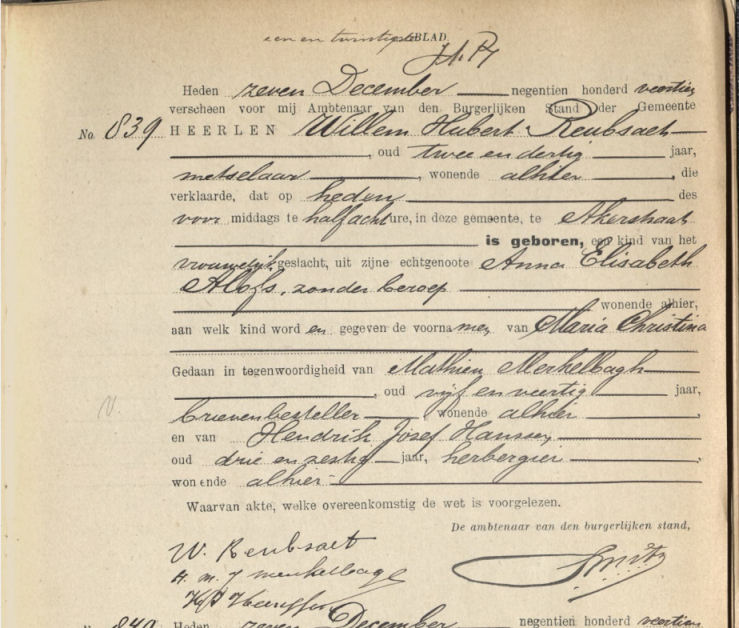 een en twintigste BLAD.
Heden zeven December negentien honderd veertien
verscheen voor mij Ambtenaar van den Burgerlijken Stand der Gemeente
No. 839 HEERLEN Willem Hubert Reubsaet
, oud twee en dertig jaar,
metselaar , wonende alhier , die
verklaarde, dat op heden des
voor middags te half acht ure, in deze gemeente, te Akerstraat
is geboren, een kind van het
vrouwelijk geslacht, uit zijne echtgenoote Anna Elisabeth
Alofs, zonder beroep
wonende alhier,
aan welk kind word en gegeven de voorna men van Maria Christina
Gedaan in tegenwoordigheid van Mathieu Merkelbagh
, oud vijf en veertig jaar,
brievenbesteller , wonende alhier ,
en van Hendrik Josef Hanssen ,
oud drie en zestig jaar, herbergier ,
wonende alhier
Waarvan akte, welke overeenkomstig de wet is voorgelezen.
De ambtenaar van den burgerlijken stand,
W. Reubsaet
H. M. J Merkelbagh
No. 840 Heden zeven December negentien honderd veertien